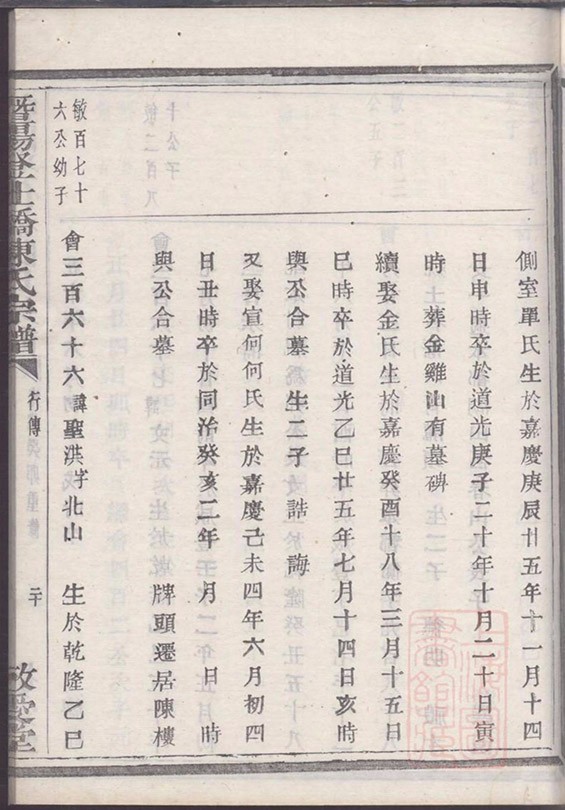 側室單氏生於嘉慶庚辰廿五年十一月十四
日申時卒於道光庚子二十年十月二十日寅
時 葬金雞山有墓碑
續娶金氏生於嘉慶癸酉十八年三月十五日
巳時卒於道光乙巳廿五年七月十四日亥時
與公合墓 生二子 誥 誨
又娶宣何何氏生於嘉慶己未四年六月初四
日丑時卒於同治癸亥二年 月 日 時
與公合摹 牌頭遷居陳樓
敏百七十
六公幼子
會三百六十六諱聖洪字北山 生於乾隆乙巳
暨陽登仕橋陳氏宗譜
行傳
二十
敬愛堂